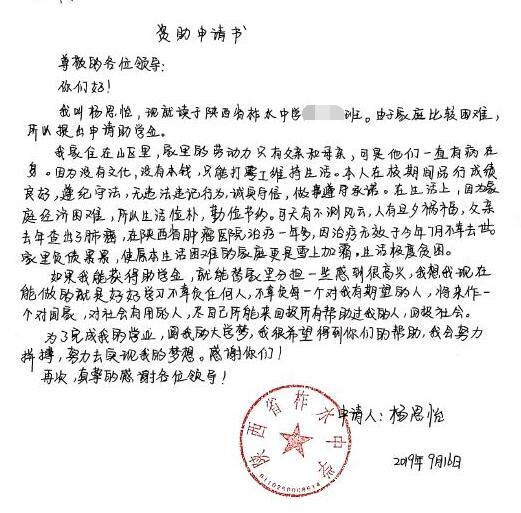 资助申请书
尊敬的各位领导：
你们好！
我叫杨思怡，现就读于陕西省柞水中学班。由于家庭比较困难，
所以提出申请助学金。
我家住在山区里，家里的劳动力只有父亲和母亲，可是他们一直有病在
身。因为没有文化，没有本钱，只能打零工维持生活。本人在校期间品行成绩
良好，遵纪守法，无违法违记行为，诚实守信，做事遵守承诺。在生活上，因为家
庭经济困难，所以生活俭朴，勤俭节约。可天有不测风云，人有旦夕祸福，父亲
去年查出了肺癌，在陕西省肿瘤医院治疗一年多，因治疗无效于今年7月不幸去世
家里负债累累，使原本生活困难的家庭更是雪上加霜。生活极度贫困。
如果我能获得助学金，就能替家里分担一些感到很高兴，我想我现在
能做的就是好好学习不辜负任何人，不辜负每一个对我有期望的人，将来作一
个对国家，对社会有用的人，尽自己所能来回报所有帮助过我的人，回报社会。
为了完成我的学业，圆我的大学梦，我很希望得到你们的帮助，我会努力
拼搏，努力去实现我的梦想。感谢你们！
再次，真挚的感谢各位领导！
申请人：杨思怡
2019年9月16日
陕西省柞水中学